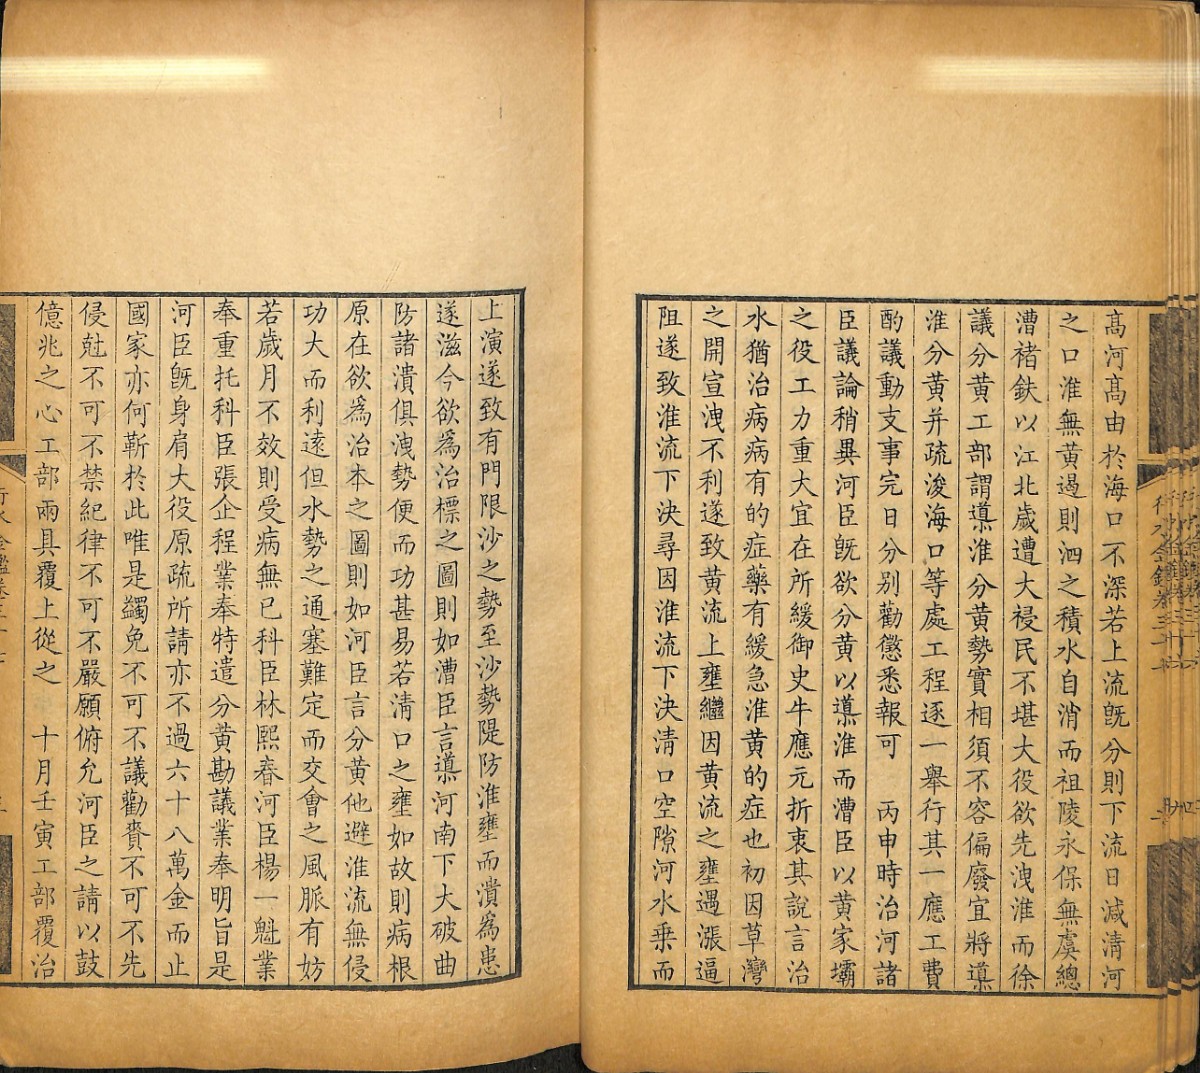 高河高由於海口不深若上流旣分則下流日減清河
之口淮無黃遏則泗之積水自消而祖陵永保無虞總
漕禇鈇以江北歲遭大祲民不堪大役欲先洩淮而徐
議分黃工部謂導淮分黃勢實相須不容偏廢宜將導
淮分黃并疏浚海口等處工程逐一舉行其一應工費
酌議動支事完日分別勸懲悉報可　丙申時治河諸
臣議論稍異河臣旣欲分黃以導淮而漕臣以黃家壩
之役工力重大宜在所緩御史牛應元折衷其說言治
水猶治病病有的症藥有緩急淮黃的症也初因草灣
之開宣洩不利遂致黃流上壅繼因黃流之壅遇漲逼
阻遂致淮流下決尋因淮流下決淸口空隙河水乗而
上演遂致有門限沙之勢至沙勢隄防淮壅而潰爲患
遂滋今欲爲治標之圖則如漕臣言導河南下大破曲
防諸潰俱洩勢便而功甚易若淸口之壅如故則病根
原在欲爲治本之圖則如河臣言分黃他避淮流無侵
功大而利逺但水勢之通塞難定而交會之風脈有妨
若歲月不效則受病無已科臣林熙春河臣楊一魁業
奉重托科臣張企程業奉特遣分黃勘議業奉明旨是
河臣旣身肩大役原疏所請亦不過六十八萬金而止
國家亦何靳於此唯是蠲免不可不議勸賚不可不先
侵尅不可不禁紀律不可不嚴願俯允河臣之請以鼓
億兆之心工部兩具覆上從之　十月壬寅工部覆治